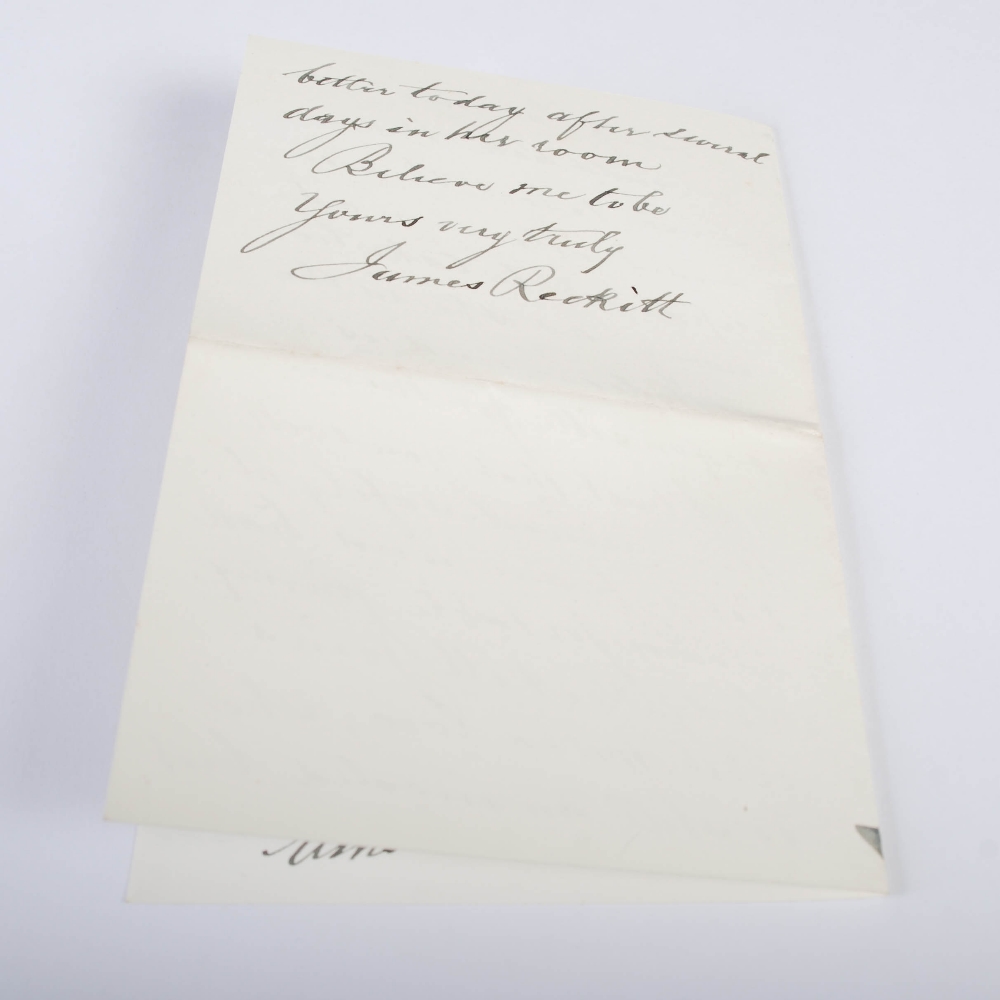 better to day after several
days in her room
Believe me to be
Yours very truly
James Reckitt